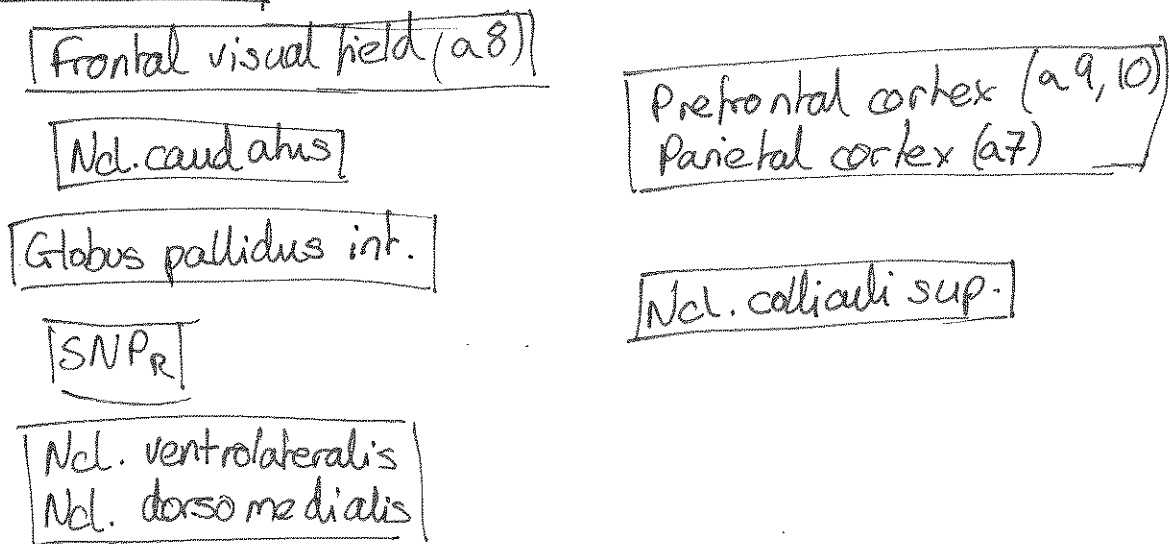 Frontal visual field (a8)
Ncl. caudatus
Globus pallidus int.
SNPR
Ncl. ventrolateralis
Ncl. dorsomedialis
Prefrontal cortex (a9,10)
Parietal cortex (a7)
Ncl. colliculi sup.